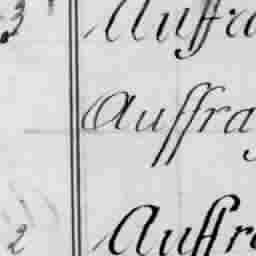 3 Auffra
Auffra
2 Auffr